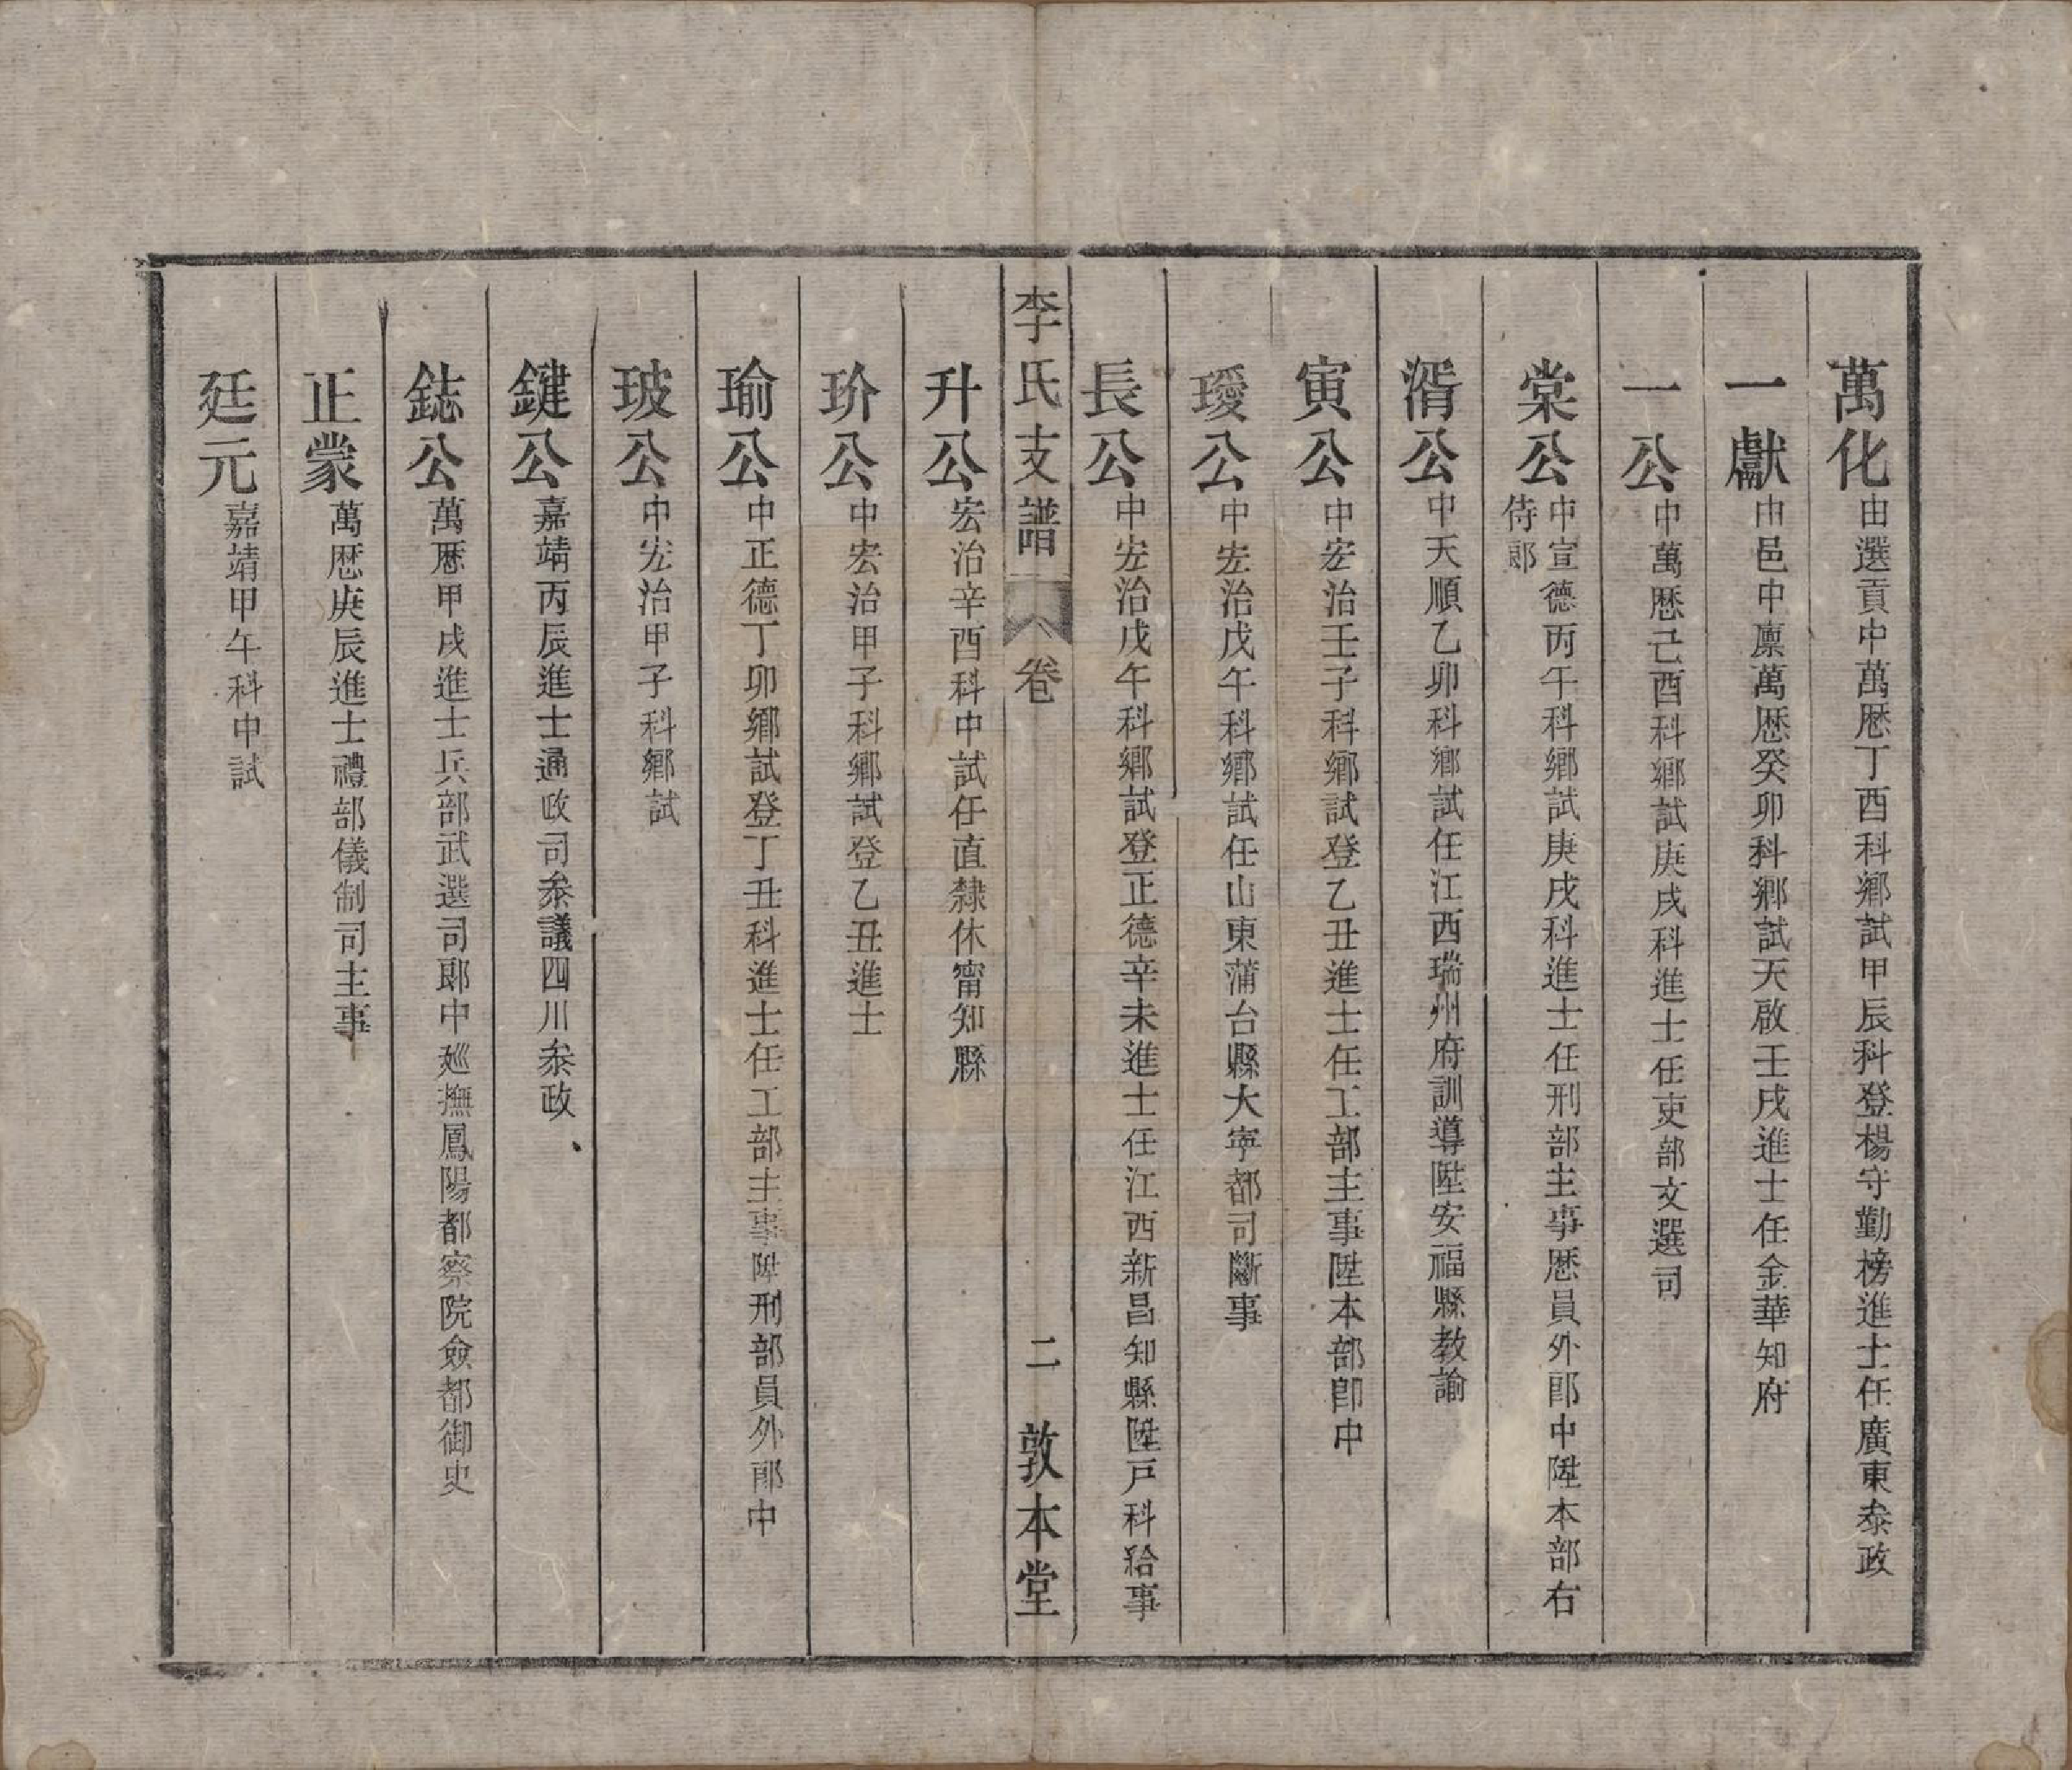 萬化由選貢中萬厯丁酉科鄉試甲辰科登楊守勤榜進士任廣東叅政
一獻由邑中廪萬厯癸卯科鄉試天啟壬戌進士任金華知府
一公中萬厯己酉科鄉試庚戌科進士任吏部文選司
棠公中宣德丙午科鄉試庚戌科進士任刑部主事厯員外郎中陞本部右
侍郎
湑公中天順乙卯科鄉試任江西瑞州府訓導陞安福縣教諭
寅公中宏治壬子科鄉試登乙丑進士任工部主事陞本部郎中
璦公中宏治戊午科鄉試任山東蒲台縣大寕都司斷事
長公中宏治戊午科鄉試登正德辛未進士任江西新昌知縣陞戸科給事
李氏支譜 卷 二 敦本堂
升公宏治辛酉科中試任直隸休甯知縣
玠公中宏治甲子科鄉試登乙丑進士
瑜公中正德丁卯鄉試登丁丑科進士任工部主事陞刑部員外郎中
玻公中宏治甲子科鄉試
鍵公嘉靖丙辰進士通政司叅議四川叅政
鋕公萬厯甲戌進士兵部武選司郎中廵撫鳳陽都察院僉都御史
正蒙萬厯庚辰進士禮部儀制司主事
廷元嘉靖甲午科中試